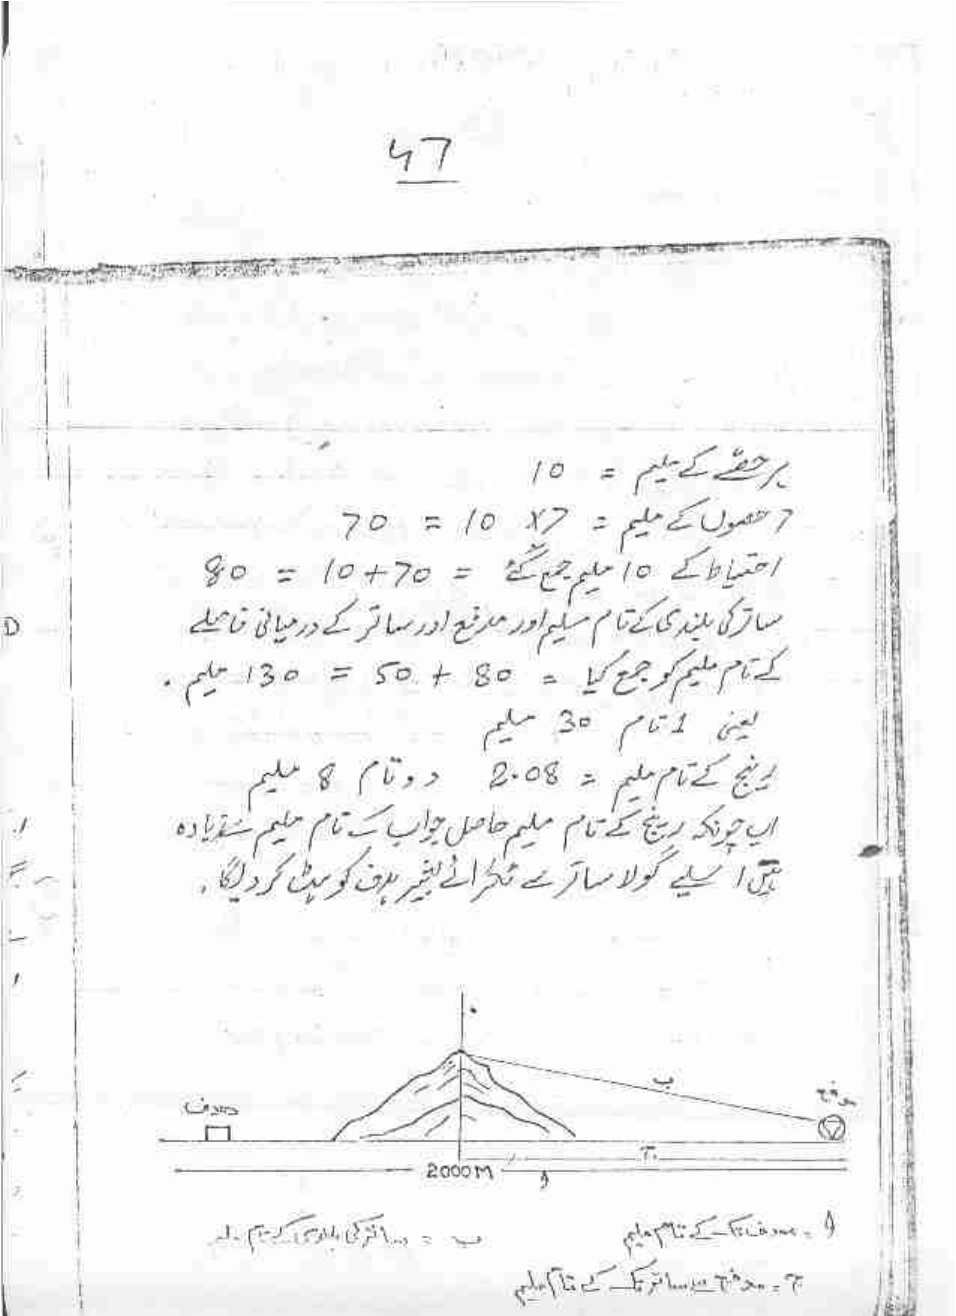 47
ہر حصّے کے ملیم = 10
7 حصوں کے ملیم = 7×10 = 70
احتیاط کے 10 ملیم جمع گئے = 70+10 = 80
ساتر کی بلندی کے تام ملیم اور مدفع اور ساتر کے درمیانی فاصلے
کے تام ملیم کو جمع کیا = 80 + 50 = 130 ملیم۔
یعنی 1 تام 30 ملیم
رینج کے تام ملیم = 2.08 دو تام 8 ملیم
اب چونکہ رینج کے تام ملیم حاصل جواب کے تام ملیم سے زیادہ
ہیں اسلیے گولا ساتر سے ٹکرائے بغیر ہدف کو ہٹ کر دیگا۔
ب
مدفع
ھدف
ج
2000M
أ
أ = ھدف تک کے تام ملیم
ب = ساتر کی بلندی کے تام
ج = مدفع سے ساتر تک کے تام ملیم
D